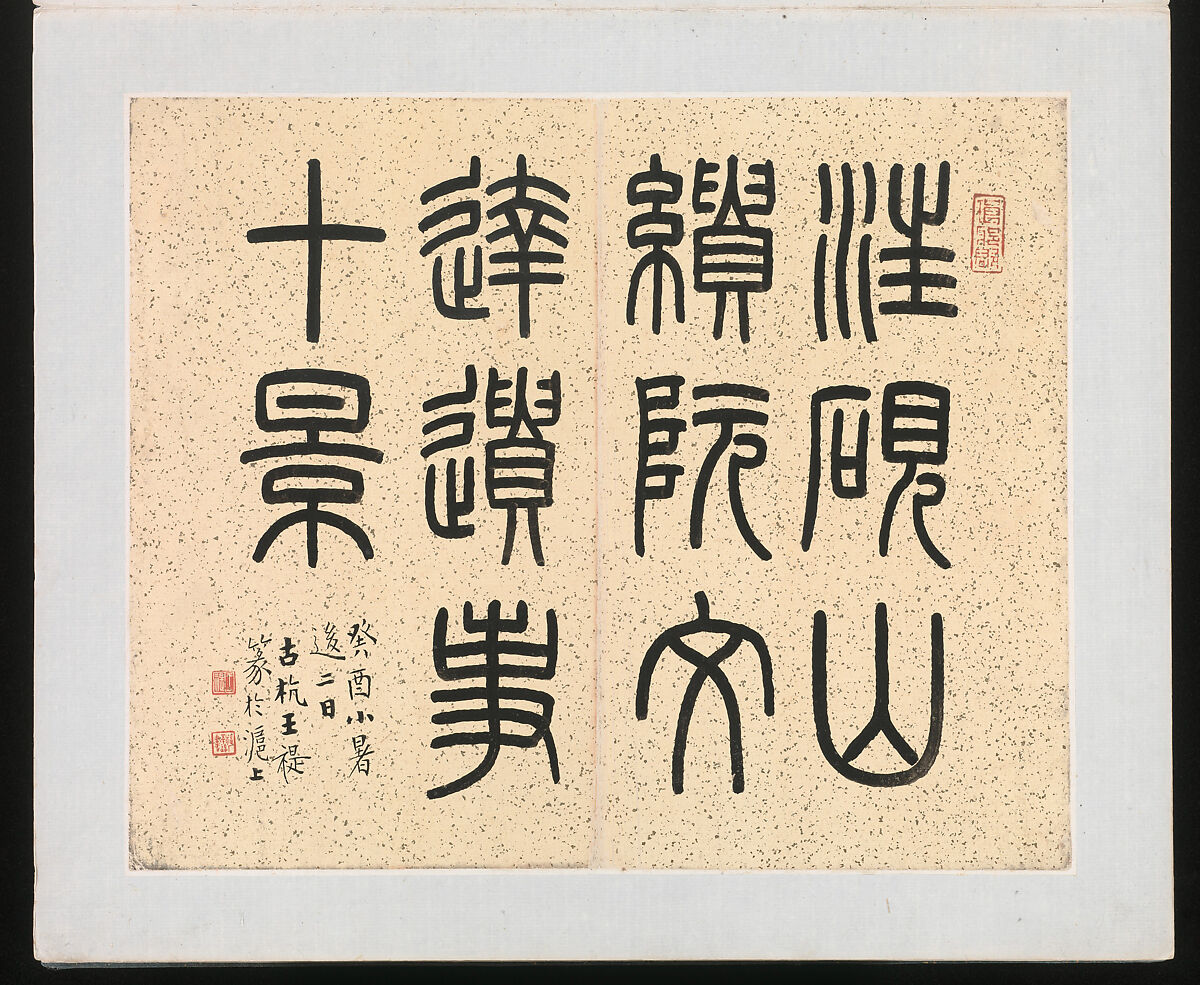 汪硯山
繢阮文
達遺事
十景
癸酉小暑
後二日
古杭王禔
篆於滬上